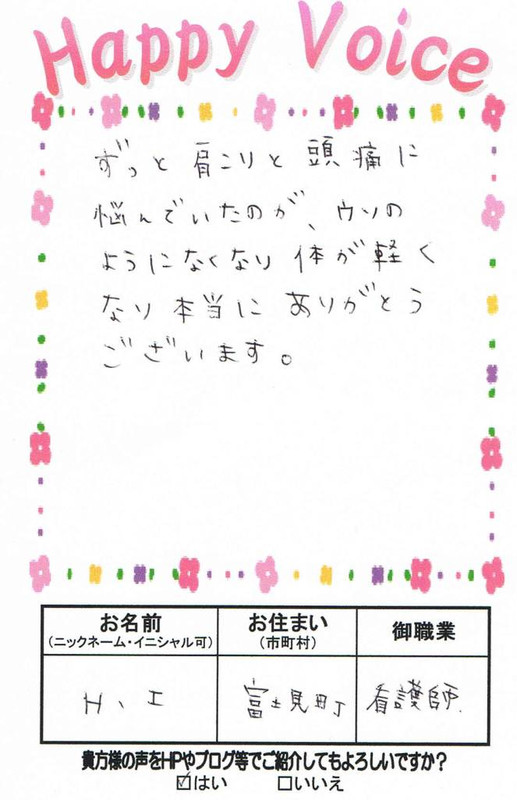 Happy Voice
ずっと肩こりと頭痛に
悩んでいたのが、ウソの
ようになくなり体が軽く
なり本当にありがとう
ございます。
お名前 お住まい 御職業
(ニックネーム・イニシャル可) (市町村)
H、I 富士見町 看護師.
貴方様の声をHPやブログ等でご紹介してもよろしいですか?
☑はい □いいえ